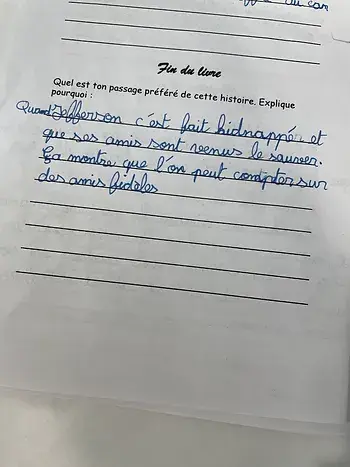 du can
Fin du livre
Quel est ton passage préféré de cette histoire. Explique
pourquoi :
Quand Jefferson c'est fait kidnappér et
que ses amis sont venus le sauver.
Ça montre que l'on peut compter sur
des amis fidèles